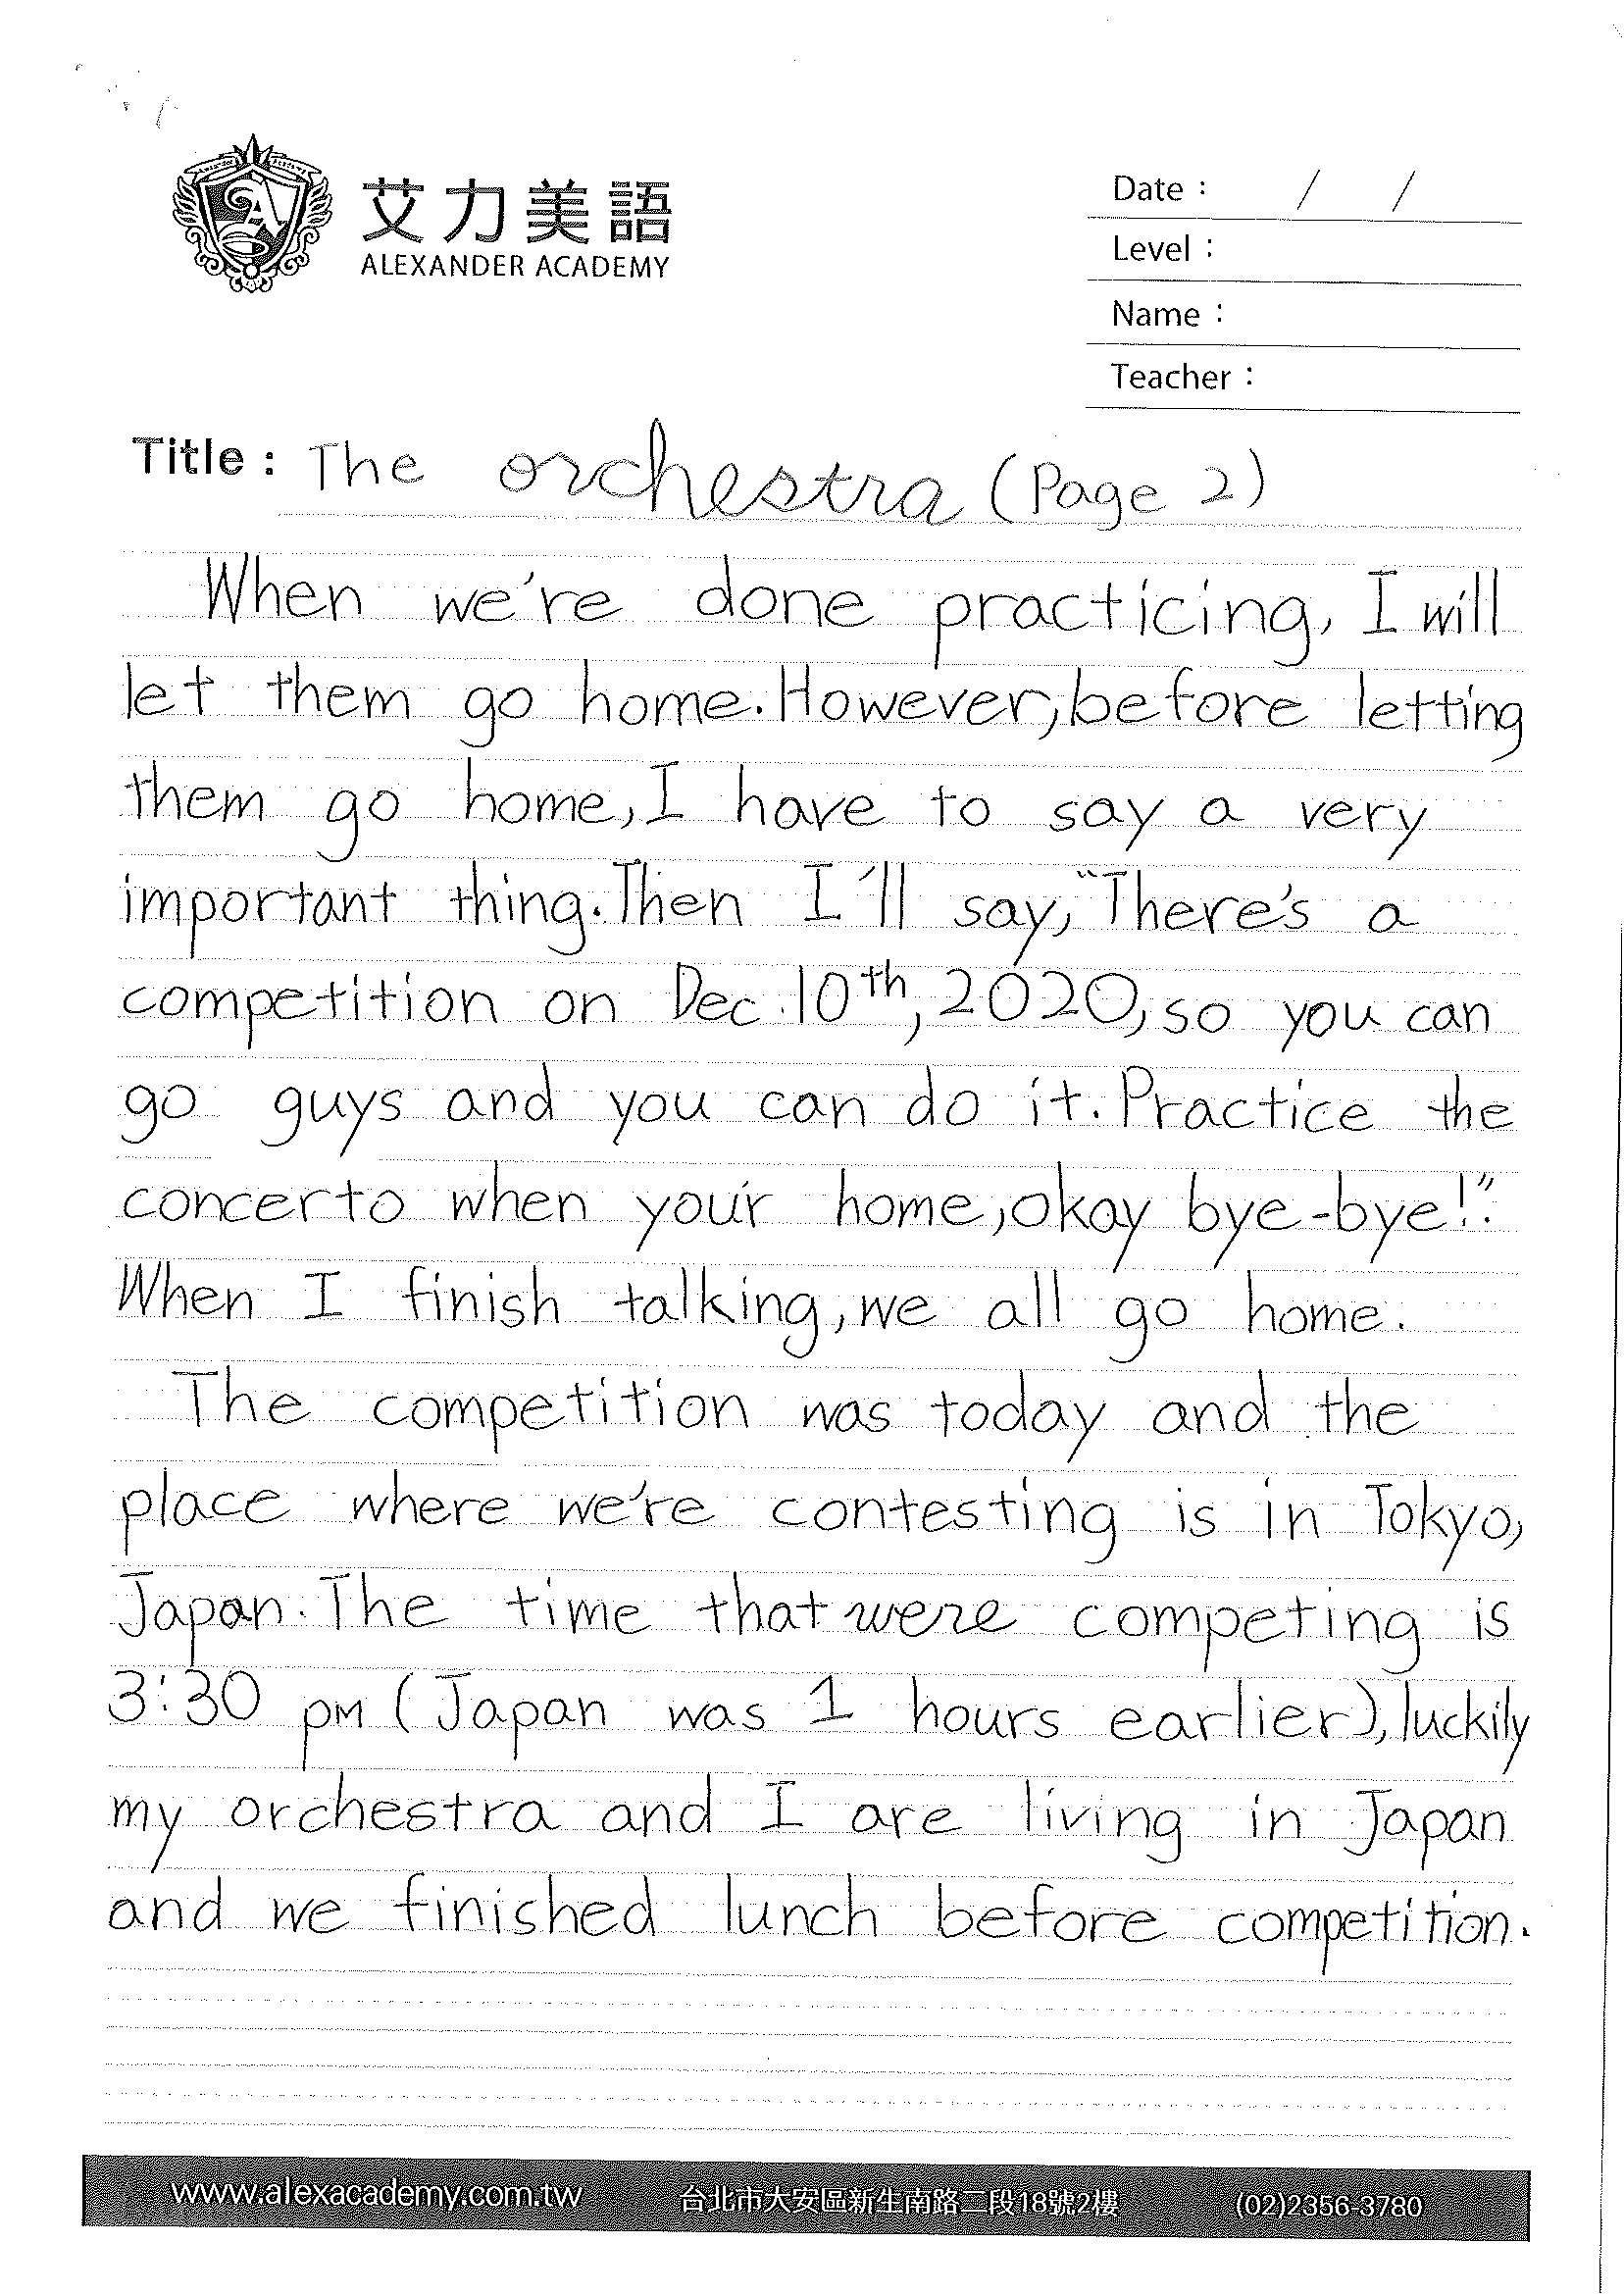 艾力美語
ALEXANDER ACADEMY
Date : / /
Level :
Name :
Teacher :
Title : The orchestra (Page 2)
When we're done practicing, I will
let them go home. However, before letting
them go home, I have to say a very
important thing. Then I'll say, "There's a
competition on Dec. 10th, 2020, so you can
go guys and you can do it. Practice the
concerto when you'r home, okay bye-bye!".
When I finish talking, we all go home.
The competition was today and the
place where we're contesting is in Tokyo,
Japan. The time that were competing is
3:30 PM (Japan was 1 hours earlier), luckily
my orchestra and I are living in Japan
and we finished lunch before competition.
www.alexacademy.com.tw 台北市大安區新生南路二段18號2樓 (02)2356-3780